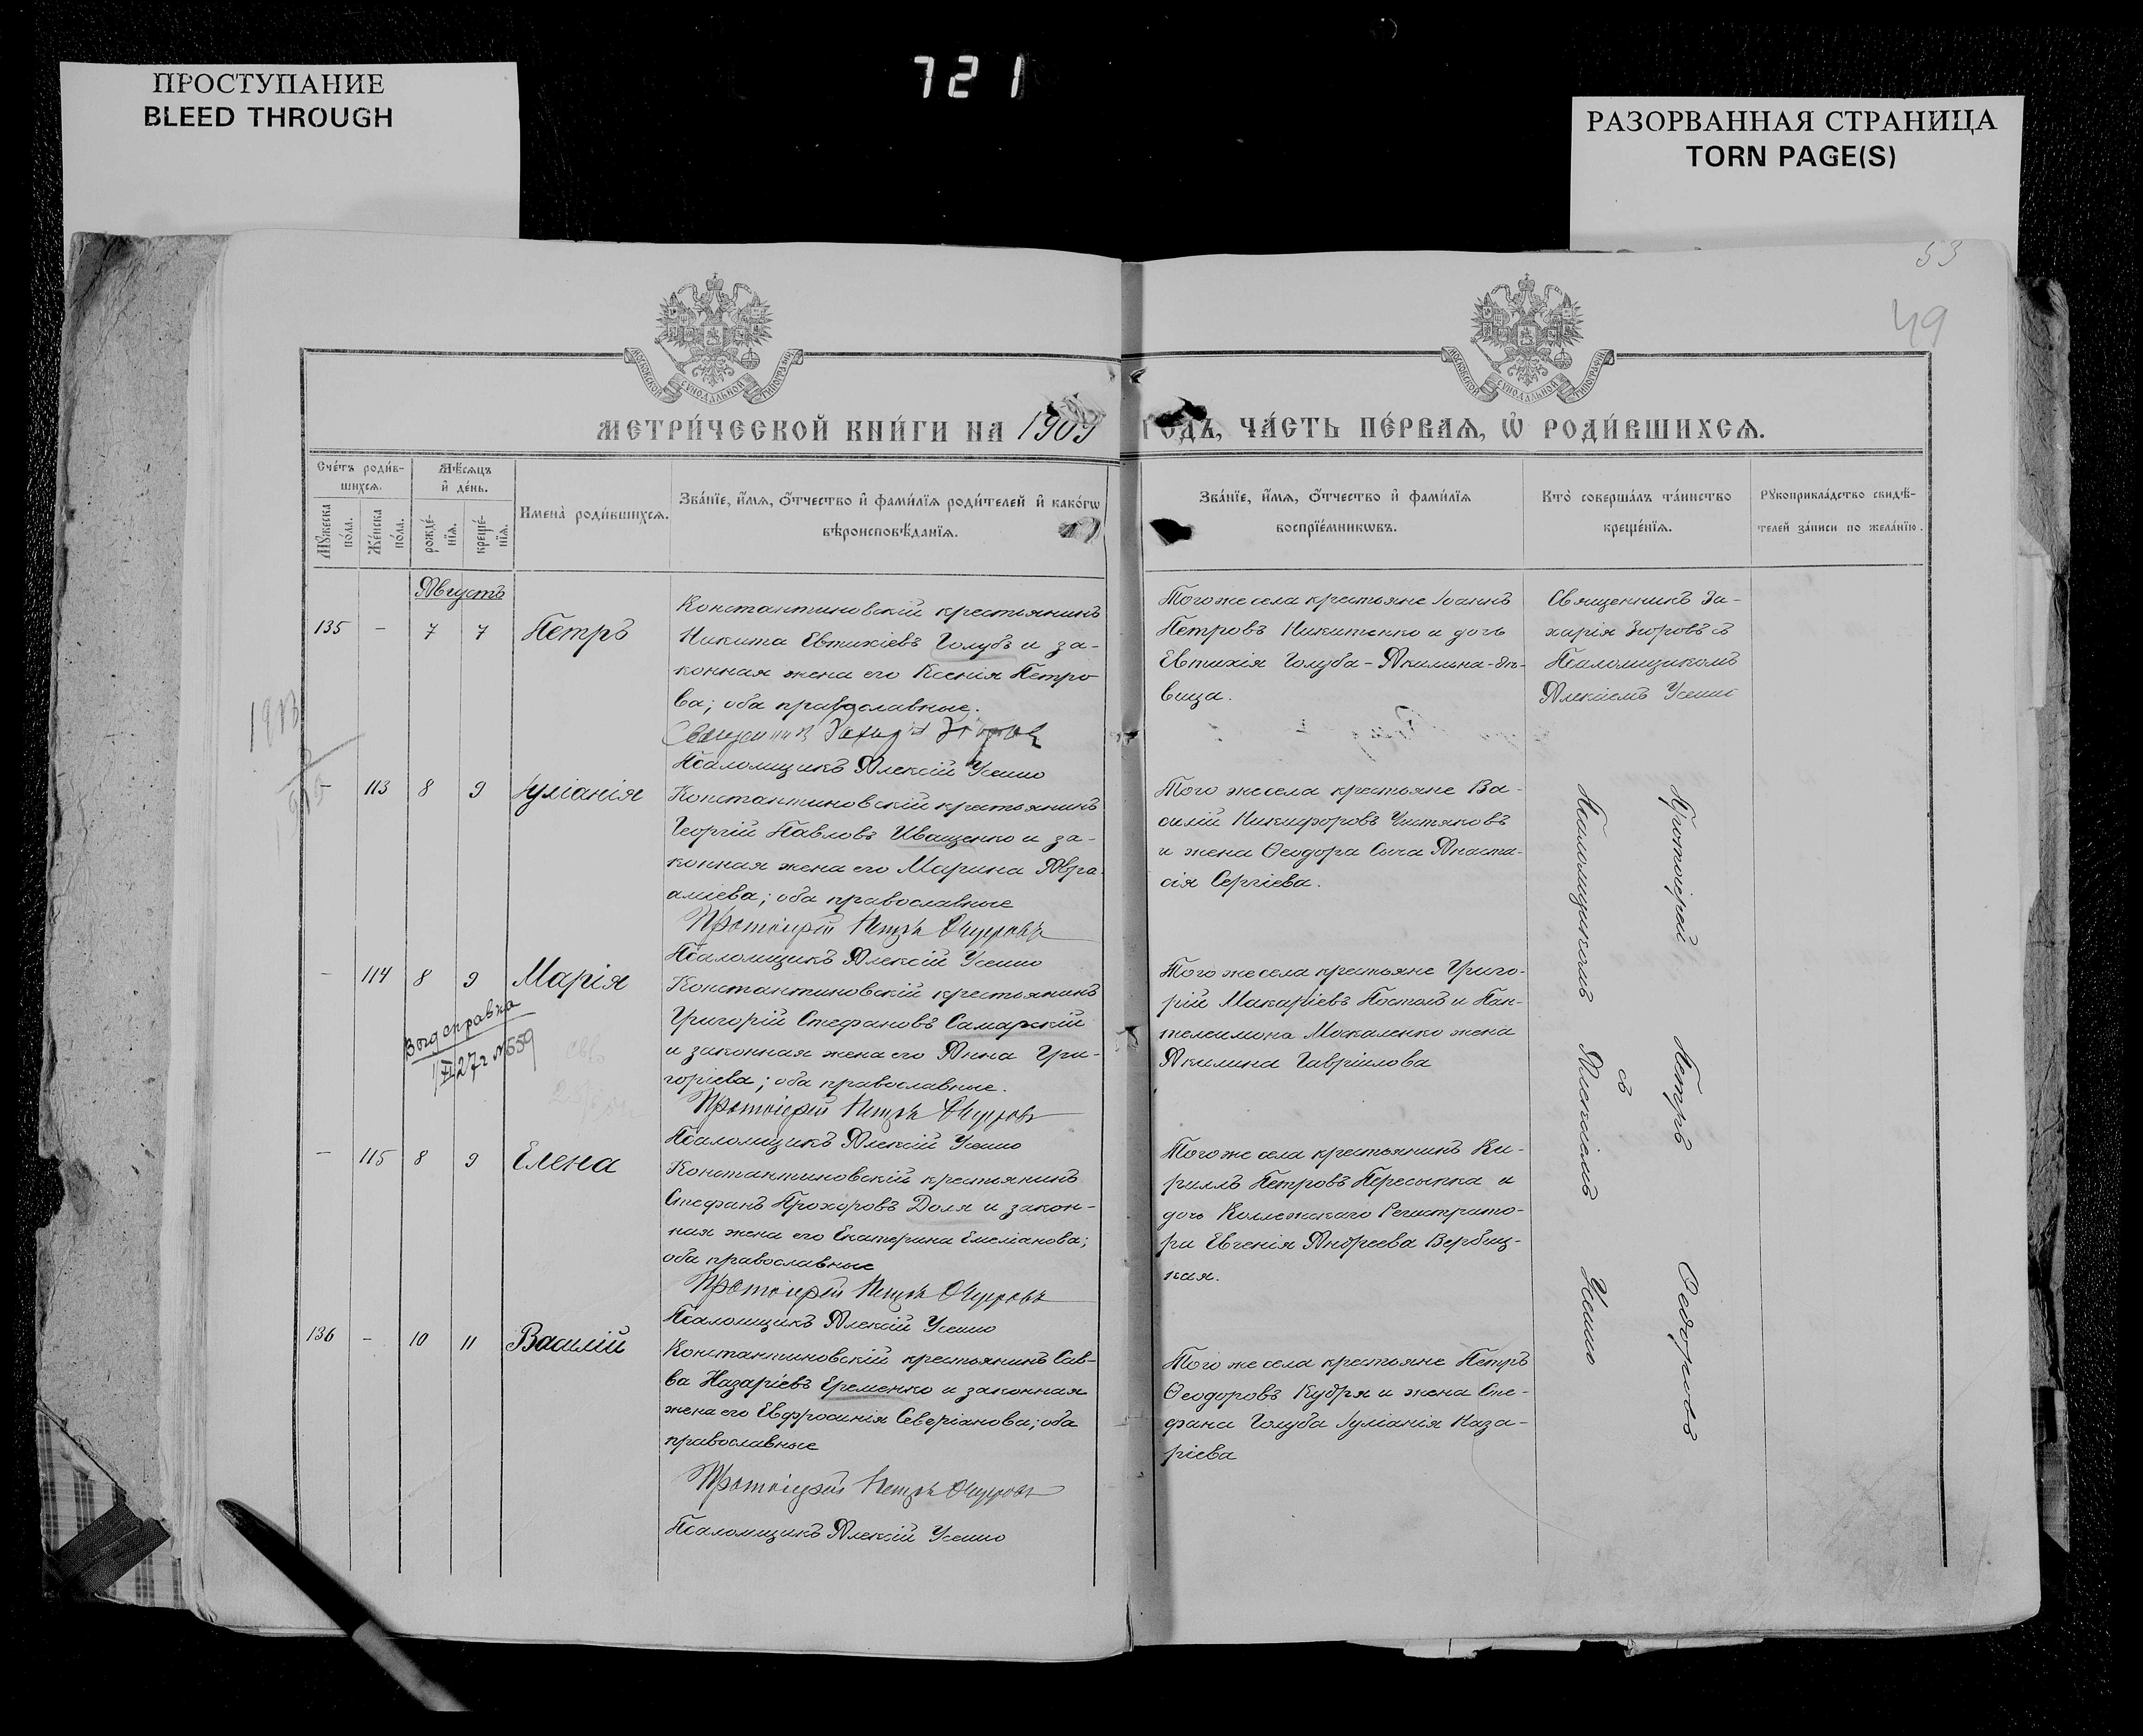 721
ПРОСТУПАНИЕ
BLEED THROUGH
РАЗОРВАННАЯ СТРАНИЦА
TORN PAGE(S)
53
49
МОСКОВСКОЙ СѴНОДАЛЬНОЙ ТИПОГРАФІИ
МОСКОВСКОЙ СѴНОДАЛЬНОЙ ТИПОГРАФІИ
МЕТРИ́ЧЕСКОЙ КНИ́ГИ НА 1909 ГОДЪ, ЧА́СТЬ ПЕ́РВАѦ, Ѡ҆ РОДИ́ВШИХСѦ.
Сче́тъ роди́в-
шихсѧ.
Мꙋжеска по́ла.
Женска по́ла.
Мѣ́сѧцъ
и҆ де́нь.
рожде́-
нїѧ.
креще́-
нїѧ.
Имена̀ роди́вшихсѧ.
Зва́нїе, и҆́мѧ, о҆́тчество и҆ фами́лїѧ роди́телей и҆ како́гѡ
вѣроисповѣ́данїѧ.
Зва́нїе, и҆́мѧ, о҆́тчество и҆ фами́лїѧ
воспрїе́мникѡвъ.
Кто̀ соверша́лъ та́инство
креще́нїѧ.
Рꙋкоприкла́дство свидѣ́-
телей за́писи по жела́нїю.
Августъ
135 - 7 7 Петръ
Константиновскій крестьянинъ
Никита Евтихіевъ Голубъ и за-
конная жена его Ксенія Петро
ва; оба православные.
Священникъ Захарія Згоровъ
Псаломщикъ Алексій Усенко
Того же села крестьяне Іоаннъ
Петровъ Никитенко и дочь
Евтихія Голуба - Акилина - дѣ-
вица.
Священникъ За-
харія Згоровъ съ
Псаломщикомъ
Алексіемъ Усенко
- 113 8 9 Іуліанія
Константиновскій крестьянинъ
Георгій Павловъ Иващенко и за-
конная жена его Марина Авра-
аміева; оба православные
Протоіерей Петръ
Псаломщикъ Алексій Усенко
Того же села крестьяне Ва-
силій Никифоровъ Чистяковъ
и жена Ѳеодора Сыча Анаста-
сія Сергіева.
Протоіерей Петръ
съ
Псаломщикомъ Алексіемъ Усенко
- 114 8 9 Марія
Выд справка
1/XI 27 г №559
Константиновскій крестьянинъ
Григорій Стефановъ Самарскій
и законная жена его Анна Гри-
горіева; оба православные.
Протоіерей Петръ
Псаломщикъ Алексій Усенко
Того же села крестьяне Григо-
рій Макаріевъ Постолъ и Пан-
телеимона Москаленко жена
Акилина Гавріилова
- 115 8 9 Елена
Константиновскій крестьянинъ
Стефанъ Прохоровъ Доля и закон-
ная жена его Екатерина Емеліанова;
оба православные
Протоіерей Петръ
Псаломщикъ Алексій Усенко
Того же села крестьянинъ Ки-
риллъ Петровъ Пересыпка и
дочь Коллежскаго Регистрато-
ра Евгенія Андреева Вербиц-
кая.
136 - 10 11 Василій
Константиновскій крестьянинъ Сав-
ва Назаріевъ Еременко и законная
жена его Евфросинія Северіанова; оба
православные
Протоіерей Петръ
Псаломщикъ Алексій Усенко
Того же села крестьяне Петръ
Ѳеодоровъ Кудря и жена Сте-
фана Голуба Іуліанія Наза-
ріева